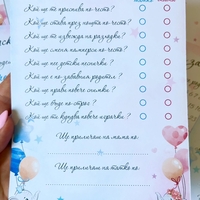 Кой ще го приспива по-често?
Кой ще става през нощта по-често?
Кой ще го извежда на разходка?
Кой ще сменя памперси по-често?
Кой ще пее детски песнички?
Кой ще е по-забавния родител?
Кой ще прави повече снимки?
Кой ще бъде по-строг?
Кой ще те купува повече играчки?
Ще прилича на мама по:
Ще прилича на татко по: